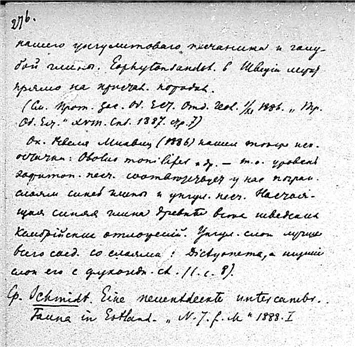 276.
нашего унгулитоваго песчаника и голу-
бой глины. Eophytonsandst. в Швеции лежит
прямо на кристал. породах.
(См. Прот. зас. Об. Ест. Отд. Геол. 1886. „Тр.
Об. Ест." XVIII. СПб. 1887. стр. I)
Ок. Ревеля Миквиц (1886) нашел тоже
остатки: Obolus monilifer и др. — т.о. уровень
песч. соответствует у нас погран.
слоям синей глины и унгул. песч. Настоя-
щая синяя глина древнее всех шведских
Кембрийских отложений. Унгул. слои лучше
всего соед. со слоями: Dictyonema, а нижний
слой его с фукоидн. (l. c. 8).
Ср. Schmidt. Eine neuentdeckte untercambr..
Fauna in Estland. „N. J. f. M" 1888. I